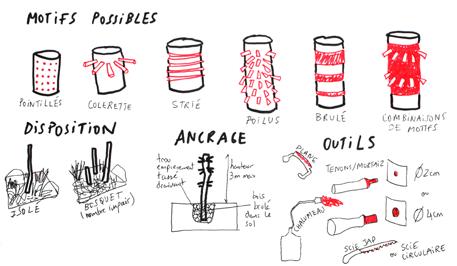 MOTIFS POSSIBLES
POINTILLÉS
COLERETTE
STRIÉ
POILUS
BRULÉ
COMBINAISONS
DE MOTIFS
DISPOSITION
ISOLE
BOSQUET
(nombre impair)
ANCRAGE
trou
empierrement
tassé
drainant
hauteur
3m max
bois
brulé
dans le
sol
OUTILS
PLANE
TENONS/MORTAISE
Ø2cm
ou
Ø4cm
CHALUMEAU
SCIE JAP
ou
SCIE
CIRCULAIRE